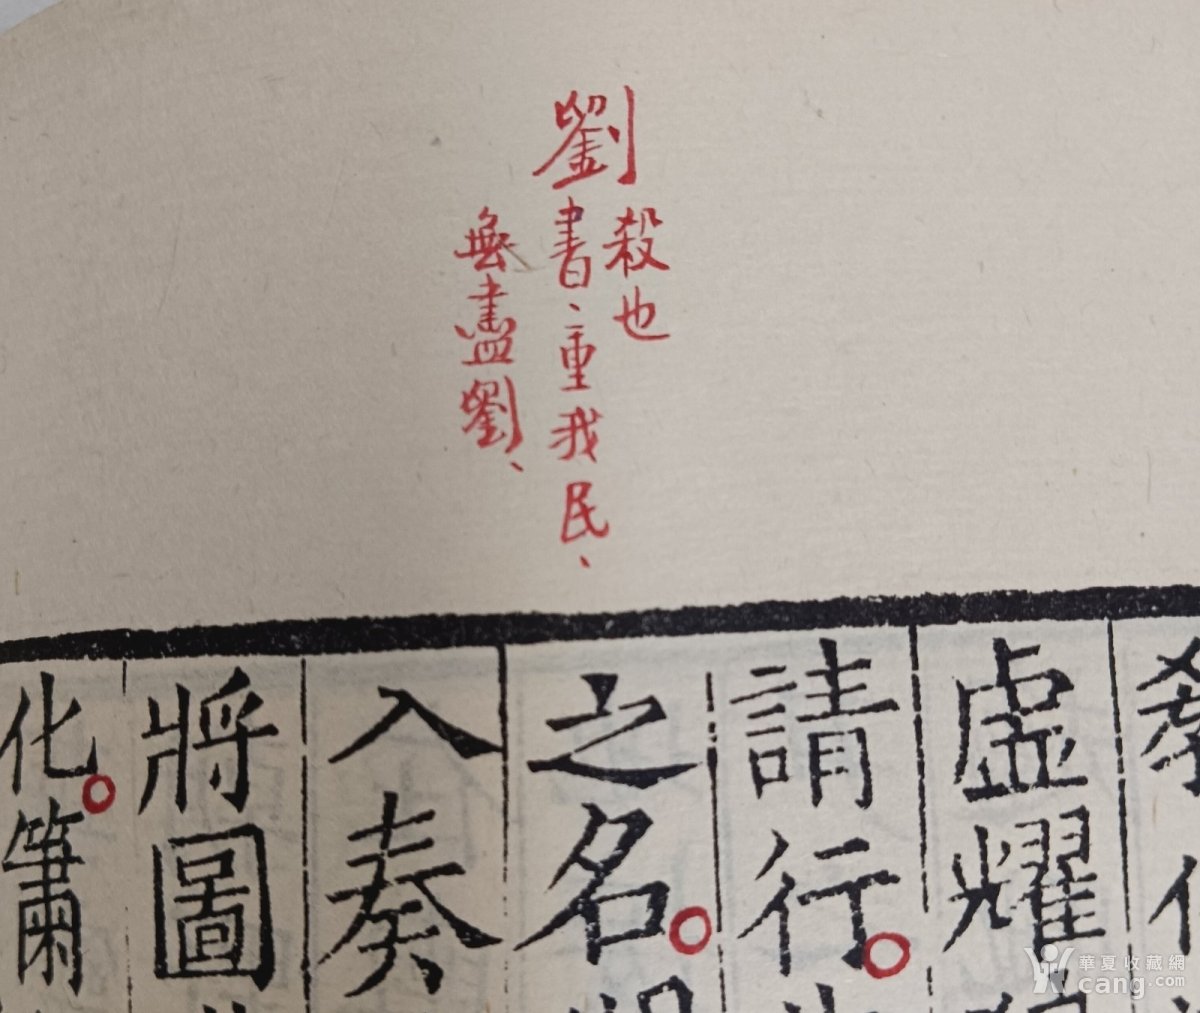 劉
殺也
書、重我民、
無盡劉、
虛耀
請行。
之名。
入奏
將圖
化。簫
華夏收藏網
cang.com